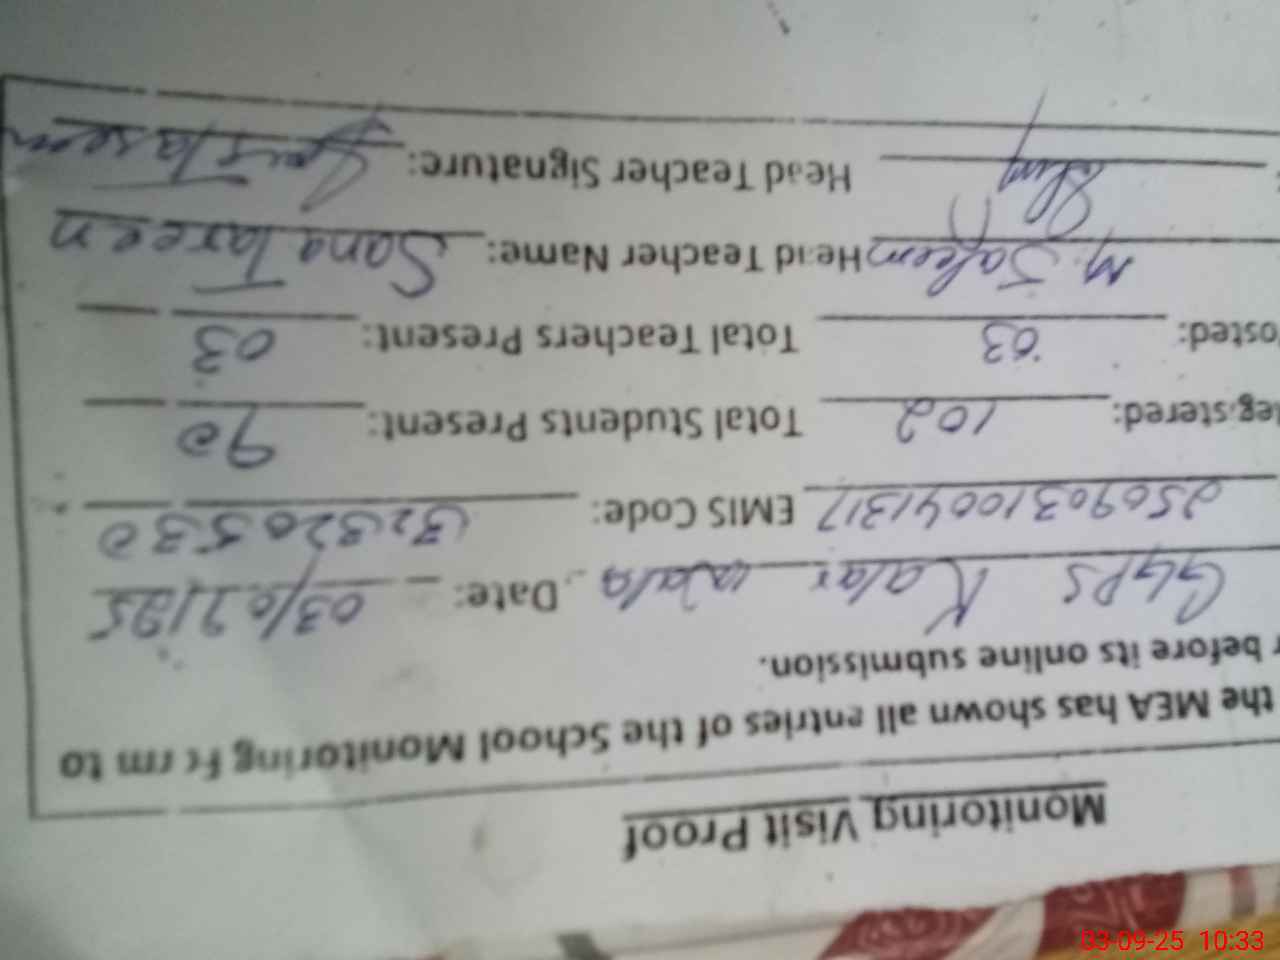 Monitoring Visit Proof
the MEA has shown all entries of the School Monitoring Form to
r before its online submission.
GGPS Kalar wala Date: 03/09/25
25090310041317 EMIS Code: 32320530
Registered: 102 Total Students Present: 90
osted: 03 Total Teachers Present: 03
M. Saleem Head Teacher Name: Sana Tareen
Head Teacher Signature:
03-09-25 10:33